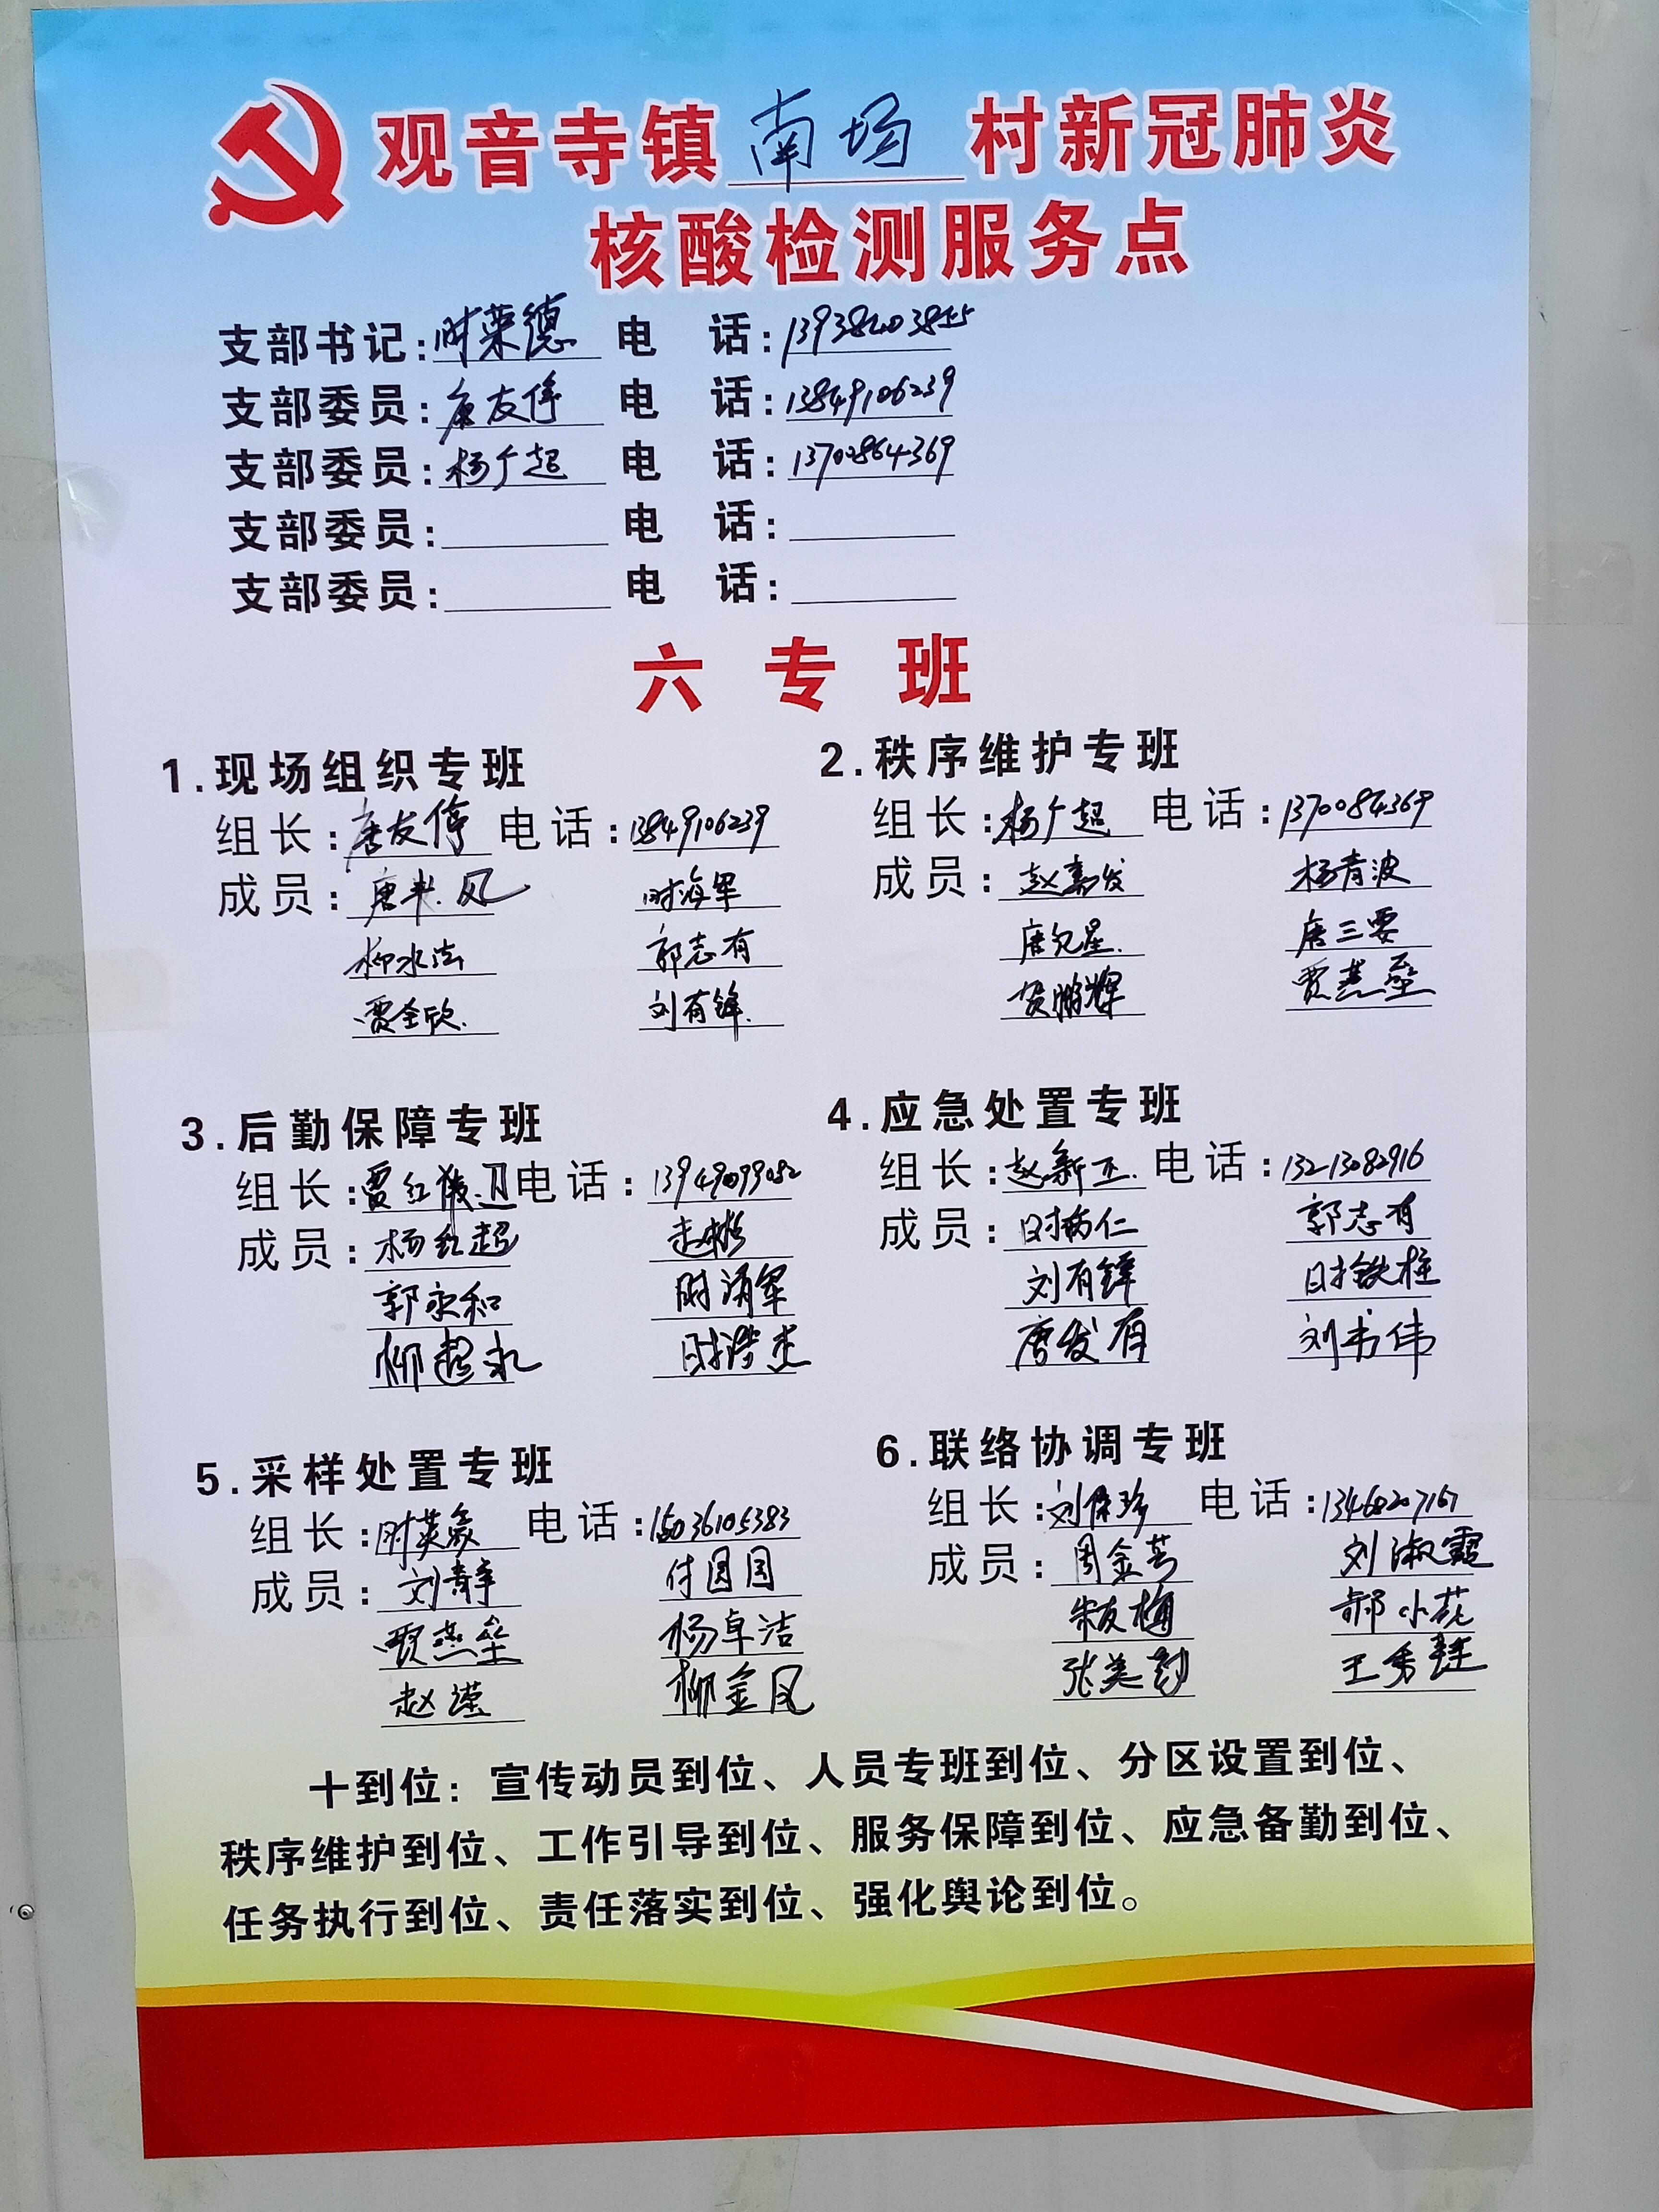 观音寺镇南场村新冠肺炎
核酸检测服务点
支部书记:时荣德 电 话:
支部委员:唐友停 电 话:13849106239
支部委员:杨广超 电 话:13702864369
支部委员: 电 话:
支部委员: 电 话:
六专班
1.现场组织专班
组长:唐友停 电话:13849106239
成员: 时海军
郭志有
贾全欣 刘有锋
2.秩序维护专班
组长:杨广超 电话:
成员: 杨青波
唐三要
贺鹏辉 贾燕垒
3.后勤保障专班
组长: 电话:
成员:杨红超
郭永和
柳超永
4.应急处置专班
组长:赵新正 电话:13213082916
成员: 郭志有
刘有锋 时铁柱
唐发有 刘书伟
5.采样处置专班
组长: 电话:15036105383
成员:刘静 付园园
贾燕垒 杨卓洁
柳金凤
6.联络协调专班
组长:刘保珍 电话:13460207167
成员: 刘淑霞
朱友梅 郝小花
十到位：宣传动员到位、人员专班到位、分区设置到位、
秩序维护到位、工作引导到位、服务保障到位、应急备勤到位、
任务执行到位、责任落实到位、强化舆论到位。